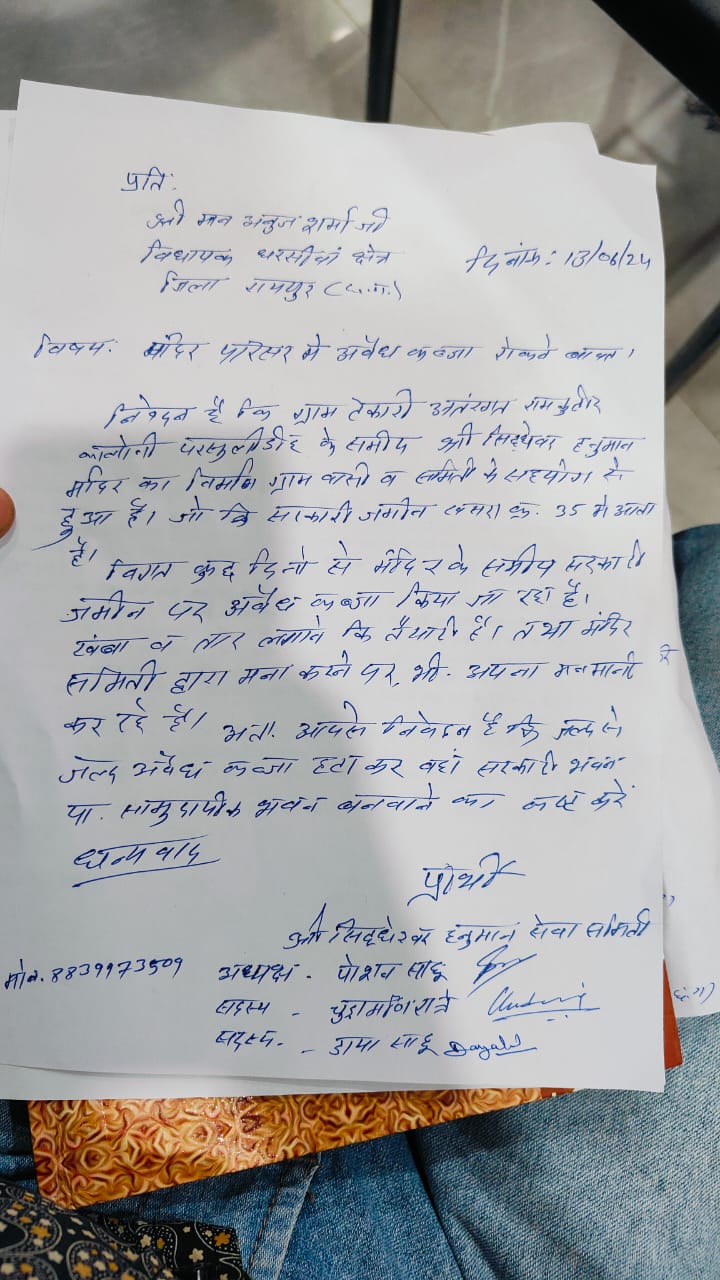 प्रति,
श्री मान अनुज शर्मा जी
विधायक धरसींवा क्षेत्र
दिनांक: 13/06/24
जिला रायपुर (छ.ग.)
विषय: मंदिर परिसर मे अवैध कब्जा रोकने बाबत।
निवेदन है कि ग्राम टेकारी अंतरगत रामकुटीर
कालोनी परसुलीडीह के समीप श्री सिद्धेश्वर हनुमान
मंदिर का निर्माण ग्राम वासी व समिती के सहयोग से
हुआ है। जो कि सरकारी जमीन खसरा क्र. 35 मे आता
है।
विगत कुछ दिनो से मंदिर के समीप सरकारी
जमीन पर अवैध कब्जा किया जा रहा है।
खंबा व तार लगाने कि तैयारी है। तथा मंदिर
समिती द्वारा मना करने पर, भी. अपना मनमानी
कर रहे है। अतः आपसे निवेदन है कि जल्द से
जल्द अवैध कब्जा हटा कर वहां सरकारी भवन
या. सामुदायीक भवन बनवाने का कष्ट करें
धन्यवाद
प्रार्थी
श्री सिद्धेश्वर हनुमान सेवा समिती
मोब. 8839973509 अध्यक्ष - पोशन साहू
सदस्य - चुड़ामणि रात्रे
सदस्य - डाया साहू Dayalu
छ.ग)